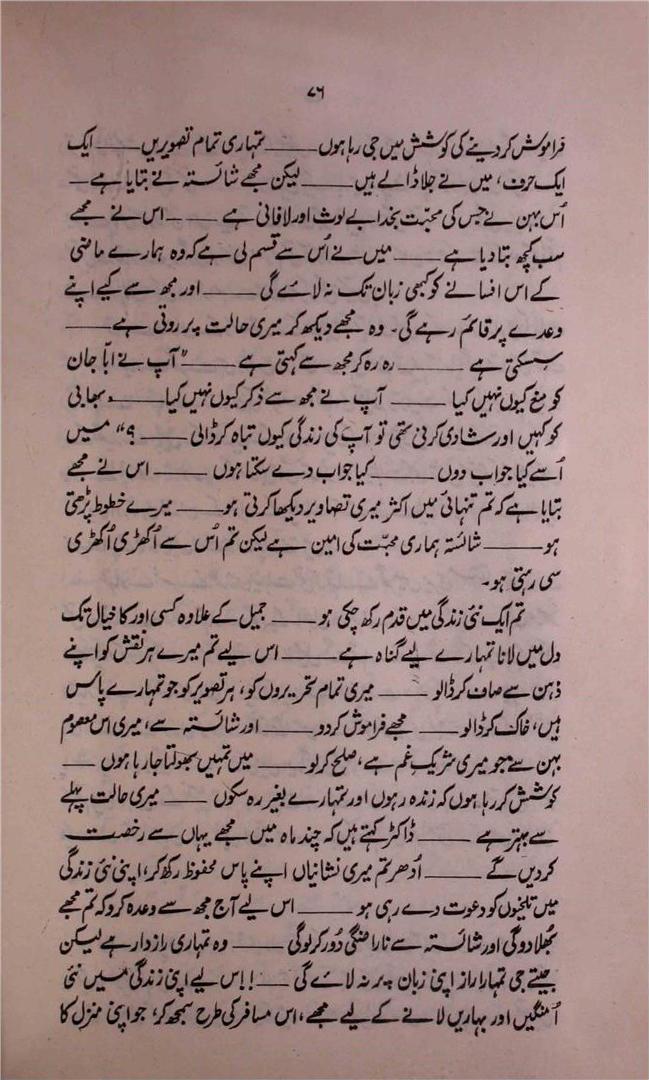 ۷۶
فراموش کر دینے کی کوشش میں جی رہا ہوں ——— تمہاری تمام تصویریں —— ایک
ایک حرف، میں نے جلا ڈالے ہیں ——— لیکن مجھے شائستہ نے بتایا ہے—
اُس بہن نے جس کی محبّت بخدا بے لوث اور لافانی ہے ——— اس نے مجھے
سب کچھ بتا دیا ہے ——— میں نے اُس سے قسم لی ہے کہ وہ ہمارے ماضی
کے اس افسانے کو کبھی زبان تک نہ لائے گی ——— اور مجھ سے کیے اپنے
وعدے پر قائم رہے گی۔ وہ مجھے دیکھ کر میری حالت پر روتی ہے———
سسکتی ہے ——— رہ رہ کر مجھ سے کہتی ہے ——— "آپ نے ابّا جان
کو منع کیوں نہیں کیا ——— آپ نے مجھ سے ذکر کیوں نہیں کیا——— بھابی
کو کہیں اور شادی کرنی تھی تو آپ کی زندگی کیوں تباہ کر ڈالی ——— ؟" میں
اُسے کیا جواب دوں ——— کیا جواب دے سکتا ہوں ——— اس نے مجھے
بتایا ہے کہ تم تنہائی میں اکثر میری تصاویر دیکھا کرتی ہو——— میرے خطوط پڑھتی
ہو——— شائستہ ہماری محبّت کی امین ہے لیکن تم اُس سے اُکھڑی اُکھڑی
سی رہتی ہو۔
تم ایک نئی زندگی میں قدم رکھ چکی ہو——— جمیل کے علاوہ کسی اور کا خیال تک
دل میں لانا تمہارے لیے گناہ ہے ——— اس لیے تم میرے ہر نقش کو اپنے
ذہن سے صاف کر ڈالو ——— میری تمام تحریروں کو، ہر تصویر کو جو تمہارے پاس
ہیں، خاک کر ڈالو ——— مجھے فراموش کر دو ——— اور شائستہ سے، میری اس معصوم
بہن سے جو میری شریکِ غم ہے، صلح کر لو——— میں تمہیں بھولتا جا رہا ہوں ———
کوشش کر رہا ہوں کہ زندہ رہوں اور تمہارے بغیر رہ سکوں ——— میری حالت پہلے
سے بہتر ہے ——— ڈاکٹر کہتے ہیں کہ چند ماہ میں مجھے یہاں سے رخصت
کر دیں گے ——— اُدھر تم میری نشانیاں اپنے پاس محفوظ رکھ کر، اپنی نئی زندگی
میں تلخیوں کو دعوت دے رہی ہو ——— اس لیے آج مجھ سے وعدہ کرو کہ تم مجھے
بھُلا دوگی اور شائستہ سے ناراضگی دُور کر لوگی ——— وہ تمہاری رازدار ہے لیکن
جیتے جی تمہارا راز اپنی زبان پر نہ لائے گی ———!! اِس لیے اپنی زندگی میں نئی
اُمنگیں اور بہاریں لانے کے لیے مجھے، اس مسافر کی طرح سمجھ کر، جو اپنی منزل کا